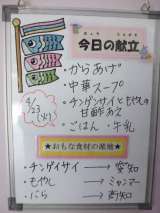 今日の献立
4/23(火)
・からあげ
・中華スープ
・チンゲンサイともやしの
甘酢あえ
・ごはん ・牛乳
★おもな食材の産地★
・チンゲイサイ → 愛知
・もやし → ミャンマー
・にら → 高知